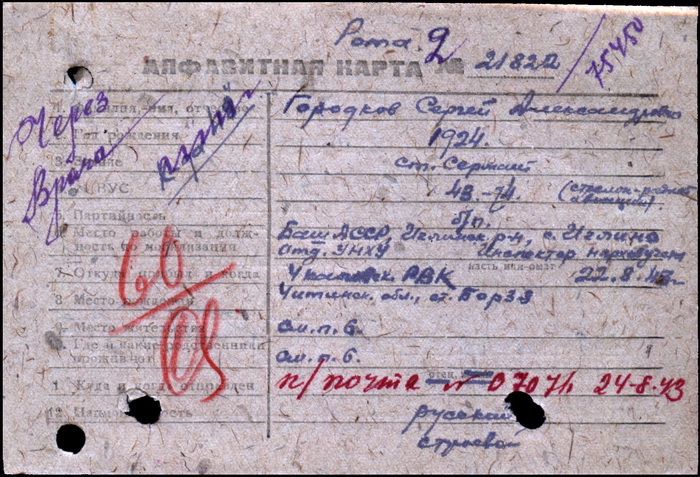 Рота 2
75450
АЛФАВИТНАЯ КАРТА № 21822
Через
Врача
1. Фамилия, имя, отчество Городков Сергей Александрович
2. Год рождения 1924.
3. Звание ст. Сержант
4. ВУС 43.-74. (стрелок-радист авиации)
5. Партийность б/п.
6. Место работы и должность до мобилизации Баш.АССР, Иглинск. р-н, с. Иглино
отд. УНХУ Инспектор нархозучет
7. Откуда прибыл и когда РВК часть или 22.8.43г
8. Место рождения Читинск. обл., ст. Борзя
9. Место жительства см. п. 6.
10. Где и какие родственники проживают см. п. 6.
60
05
11. Куда и когда отправлен п/почта № 07071 24-8.43
12. Национальность русский
строевой